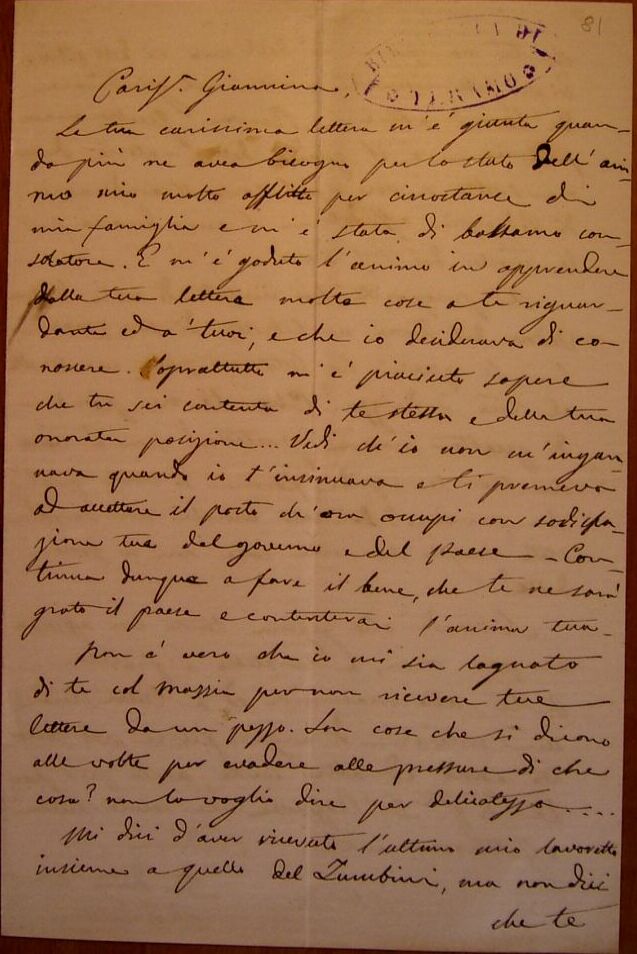 81
BIBLIOTECA DI
TERAMO
Cariss. Giannina,
La tua carissima lettera m'è giunta quan-
do più ne avea bisogno per lo stato dell'ani-
mo mio molto afflitto per circostanze di
mia famiglia e m'è stata di balsamo con-
solatore. E m'è goduto l'animo in apprendere
dalla tua lettera molte cose a te riguar-
danti ed a' tuoi, e che io desiderava di co-
noscere. Soprattutto m'è piaciuto sapere
che tu sei contenta di te stessa e della tua
onorata posizione... Vedi ch'io non m'ingan-
nava quando io t'insinuava e ti premeva
ad accettare il posto ch'ora occupi con sodisfa-
zione tua del governo e del paese - Con-
tinua dunque a fare il bene, che te ne sarà
grato il paese e contenterai l'anima tua -
Non è vero che io mi sia lagnato
di te col Massia per non ricevere tue
lettere da un pezzo. Son cose che si dicono
alle volte per evadere alle pressure di che
cosa? non lo voglio dire per delicatezza....
Mi dici d'aver ricevuto l'ultimo mio lavoretto
insieme a quello del Zumbini, ma non dici
che te